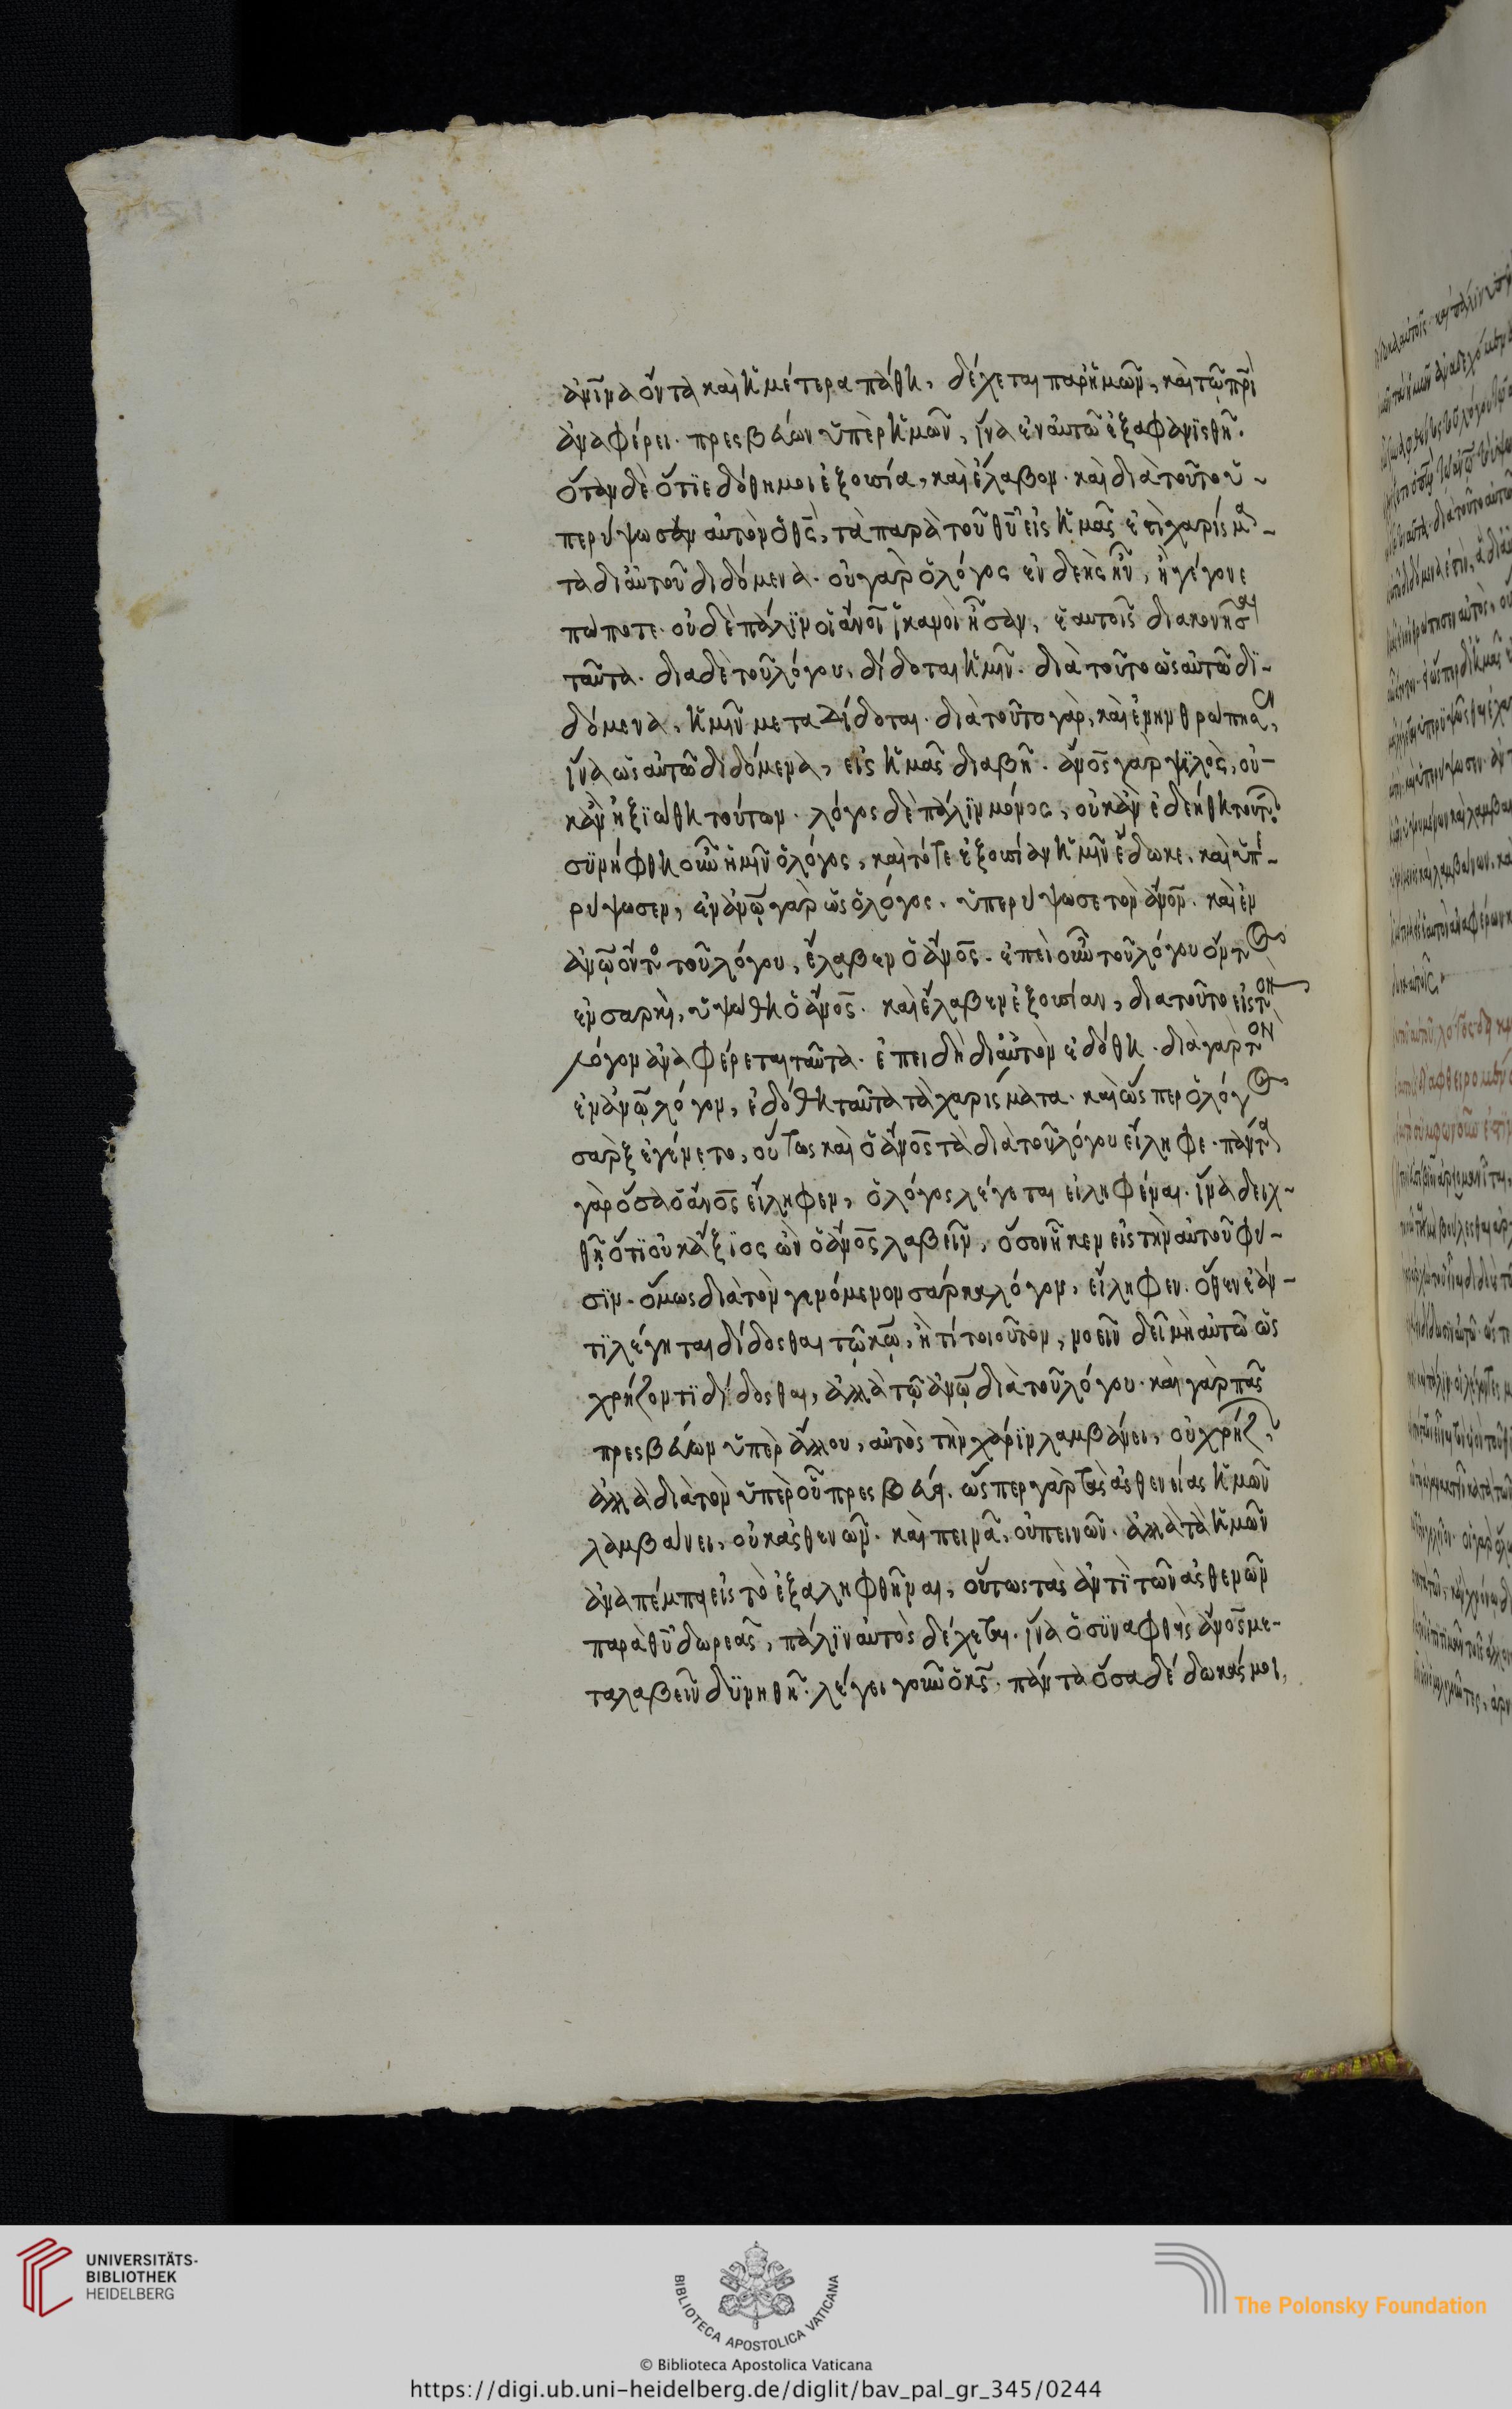 ἀνϊνα ὄντα καὶ ἡμέτερα πάθη, δέχεται παρἡμῶν, καὶ τῷ πρϊ
ἀναφέρει· πρεσβεύων ὑπὲρ ἡμῶν, ἵνα ἐν αὐτῷ ἐξαφανϊσθῇ.
ὅταν δὲ ὅτϊ ἐδόθη μοι ἐξουσία, καὶ ἔλαβον· καὶ διὰ τοῦτο ὑ-
περύψωσεν αὐτὸν ὁ θς, τὰ παρὰ τοῦ θυ εἰς ἡμᾶς ἐστὶ χαρίσμα-
τα δι αὐτοῦ διδόμενα. οὐ γὰρ ὁ λόγος ἐνδεὴς ἦν, ἢ γέγονε
πώποτε· οὐδὲ πάλϊν οἱ ἄνοι ἱκανοὶ ἦσαν, ἑαυτοῖς διακονῆσαι
ταῦτα. διὰ δὲ τοῦ λόγου, δίδοται ἡμῖν. διὰ τοῦτο ὡς αὐτῷ δϊ-
δόμενα, ἡμῖν μεταδίδοται. διὰ τοῦτο γὰρ, καὶ ἐνηνθρώπησεν,
ἵνα ὡς αὐτῷ διδόμενα, εἰς ἡμᾶς διαβῇ. ἄνος γὰρ ψϊλὸς, οὐ-
κ ἂν ἠξϊώθη τούτων· λόγος δὲ πάλϊν μόνος, οὐκ ἂν ἐδεήθη τούτων.
συνήφθη οὖν ἡμῖν ὁ λόγος, καὶ τότε ἐξουσίαν ἡμῖν ἔδωκε, καὶ ὑπε-
ρύψωσεν, ἐν ἀνω γὰρ ὢς ὁ λόγος, ὑπερύψωσε τὸν ἄνον· καὶ ἐν
ἀνω ὄντος τοῦ λόγου, ἔλαβεν ὁ ἄνος. ἐπεὶ οὖν τοῦ λόγου ὄντος
ἐν σαρκὶ, ὑψώθη ὁ ἄνος· καὶ ἔλαβεν ἐξουσίαν, διὰ τοῦτο εἰς τὸν
λόγον ἀναφέρεται ταῦτα. ἐπειδὴ δι αὐτὸν ἐδόθη. διὰ γὰρ τὸν
ἐν ἀνω λόγον, ἐδόθη ταῦτα τὰ χαρίσματα. καὶ ὥσπερ ὁ λόγος
σὰρξ ἐγένετο, οὕτως καὶ ὁ ἄνος τὰ διὰ τοῦ λόγου εἴληφε· πάντα
γὰρ ὅσα ὁ ἄνος εἴληφεν, ὁ λόγος λέγεται εἰληφέναι. ἵνα δειχ-
θῇ ὅτϊ οὐκ ἄξϊος ὢν ὁ ἄνος λαβεῖν, ὅσον ἧκεν εἰς τὴν αὐτοῦ φύ-
σϊν. ὅμως διὰ τὸν γενόμενον σάρκα λόγον, εἴληφεν. ὅθεν ἐάν-
τϊ λέγηται δίδοσθαι τῷ κω, ἤ τί τοιοῦτον, νοεῖν δεῖ μὴ αὐτῷ ὡς
χρῄζοντϊ δίδοσθαι, ἀλλὰ τῷ ἀνω διὰ τοῦ λόγου. καὶ γὰρ πᾶς
πρεσβεύων ὑπὲρ ἄλλου, αὐτὸς τὴν χάρϊν λαμβάνει, οὐ χρῄζων,
ἀλλὰ διὰ τὸν ὑπὲρ οὗ πρεσβεύει. ὥσπερ γὰρ τὰς ἀσθενείας ἡμῶν
λαμβάνει, οὐκ ἀσθενῶν. καὶ πεινᾷ, οὐ πεινῶν. ἀλλὰ τὰ ἡμῶν
ἀναπέμπει εἰς τὸ ἐξαλειφθῆναι, οὕτως τὰς ἀντὶ τῶν ἀσθενῶν
παρὰ θυ δωρεὰς, πάλϊν αὐτὸς δέχεται. ἵνα ὁ συναφθεὶς ἄνος με-
ταλαβεῖν δυνηθῇ. λέγει γοῦν ὁ κς. πάντα ὅσα δέδωκάς μοι,
UNIVERSITÄTS-
BIBLIOTHEK
HEIDELBERG
BIBLIOTECA APOSTOLICA VATICANA
The Polonsky Foundation
© Biblioteca Apostolica Vaticana
https://digi.ub.uni-heidelberg.de/diglit/bav_pal_gr_345/0244